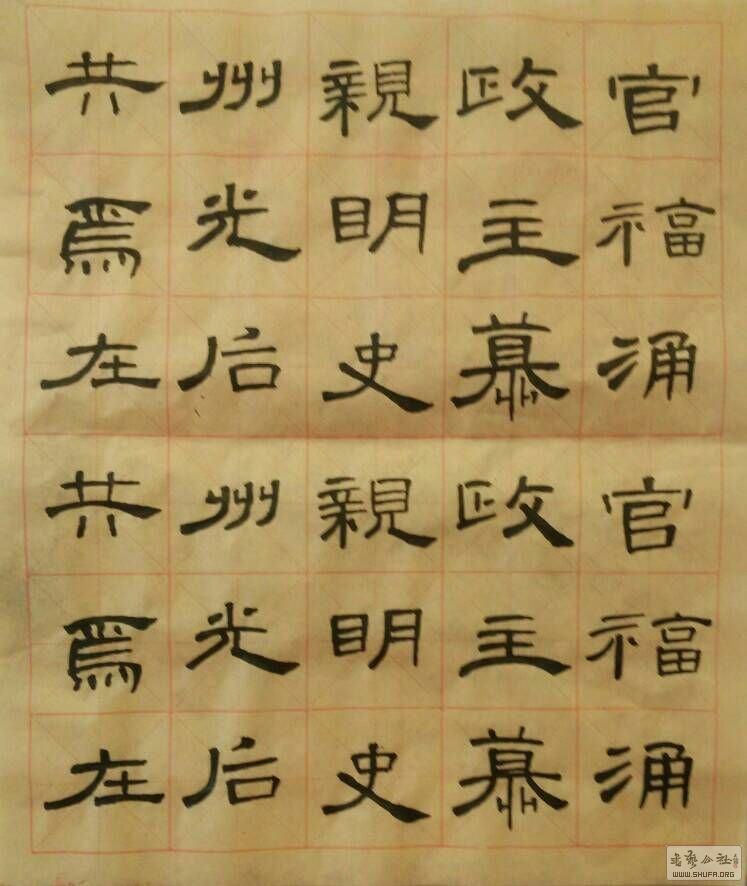 官福涌官福涌
政主慕政主慕
親明史親明史
州光后州光后
共焉在共焉在
書藝公社
WWW.SHUFA.ORG